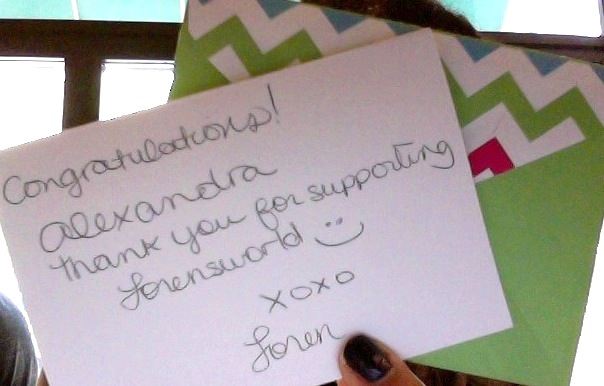 Congratulations!
Alexandra
thank you for supporting
lorensworld ☺
xoxo
Loren